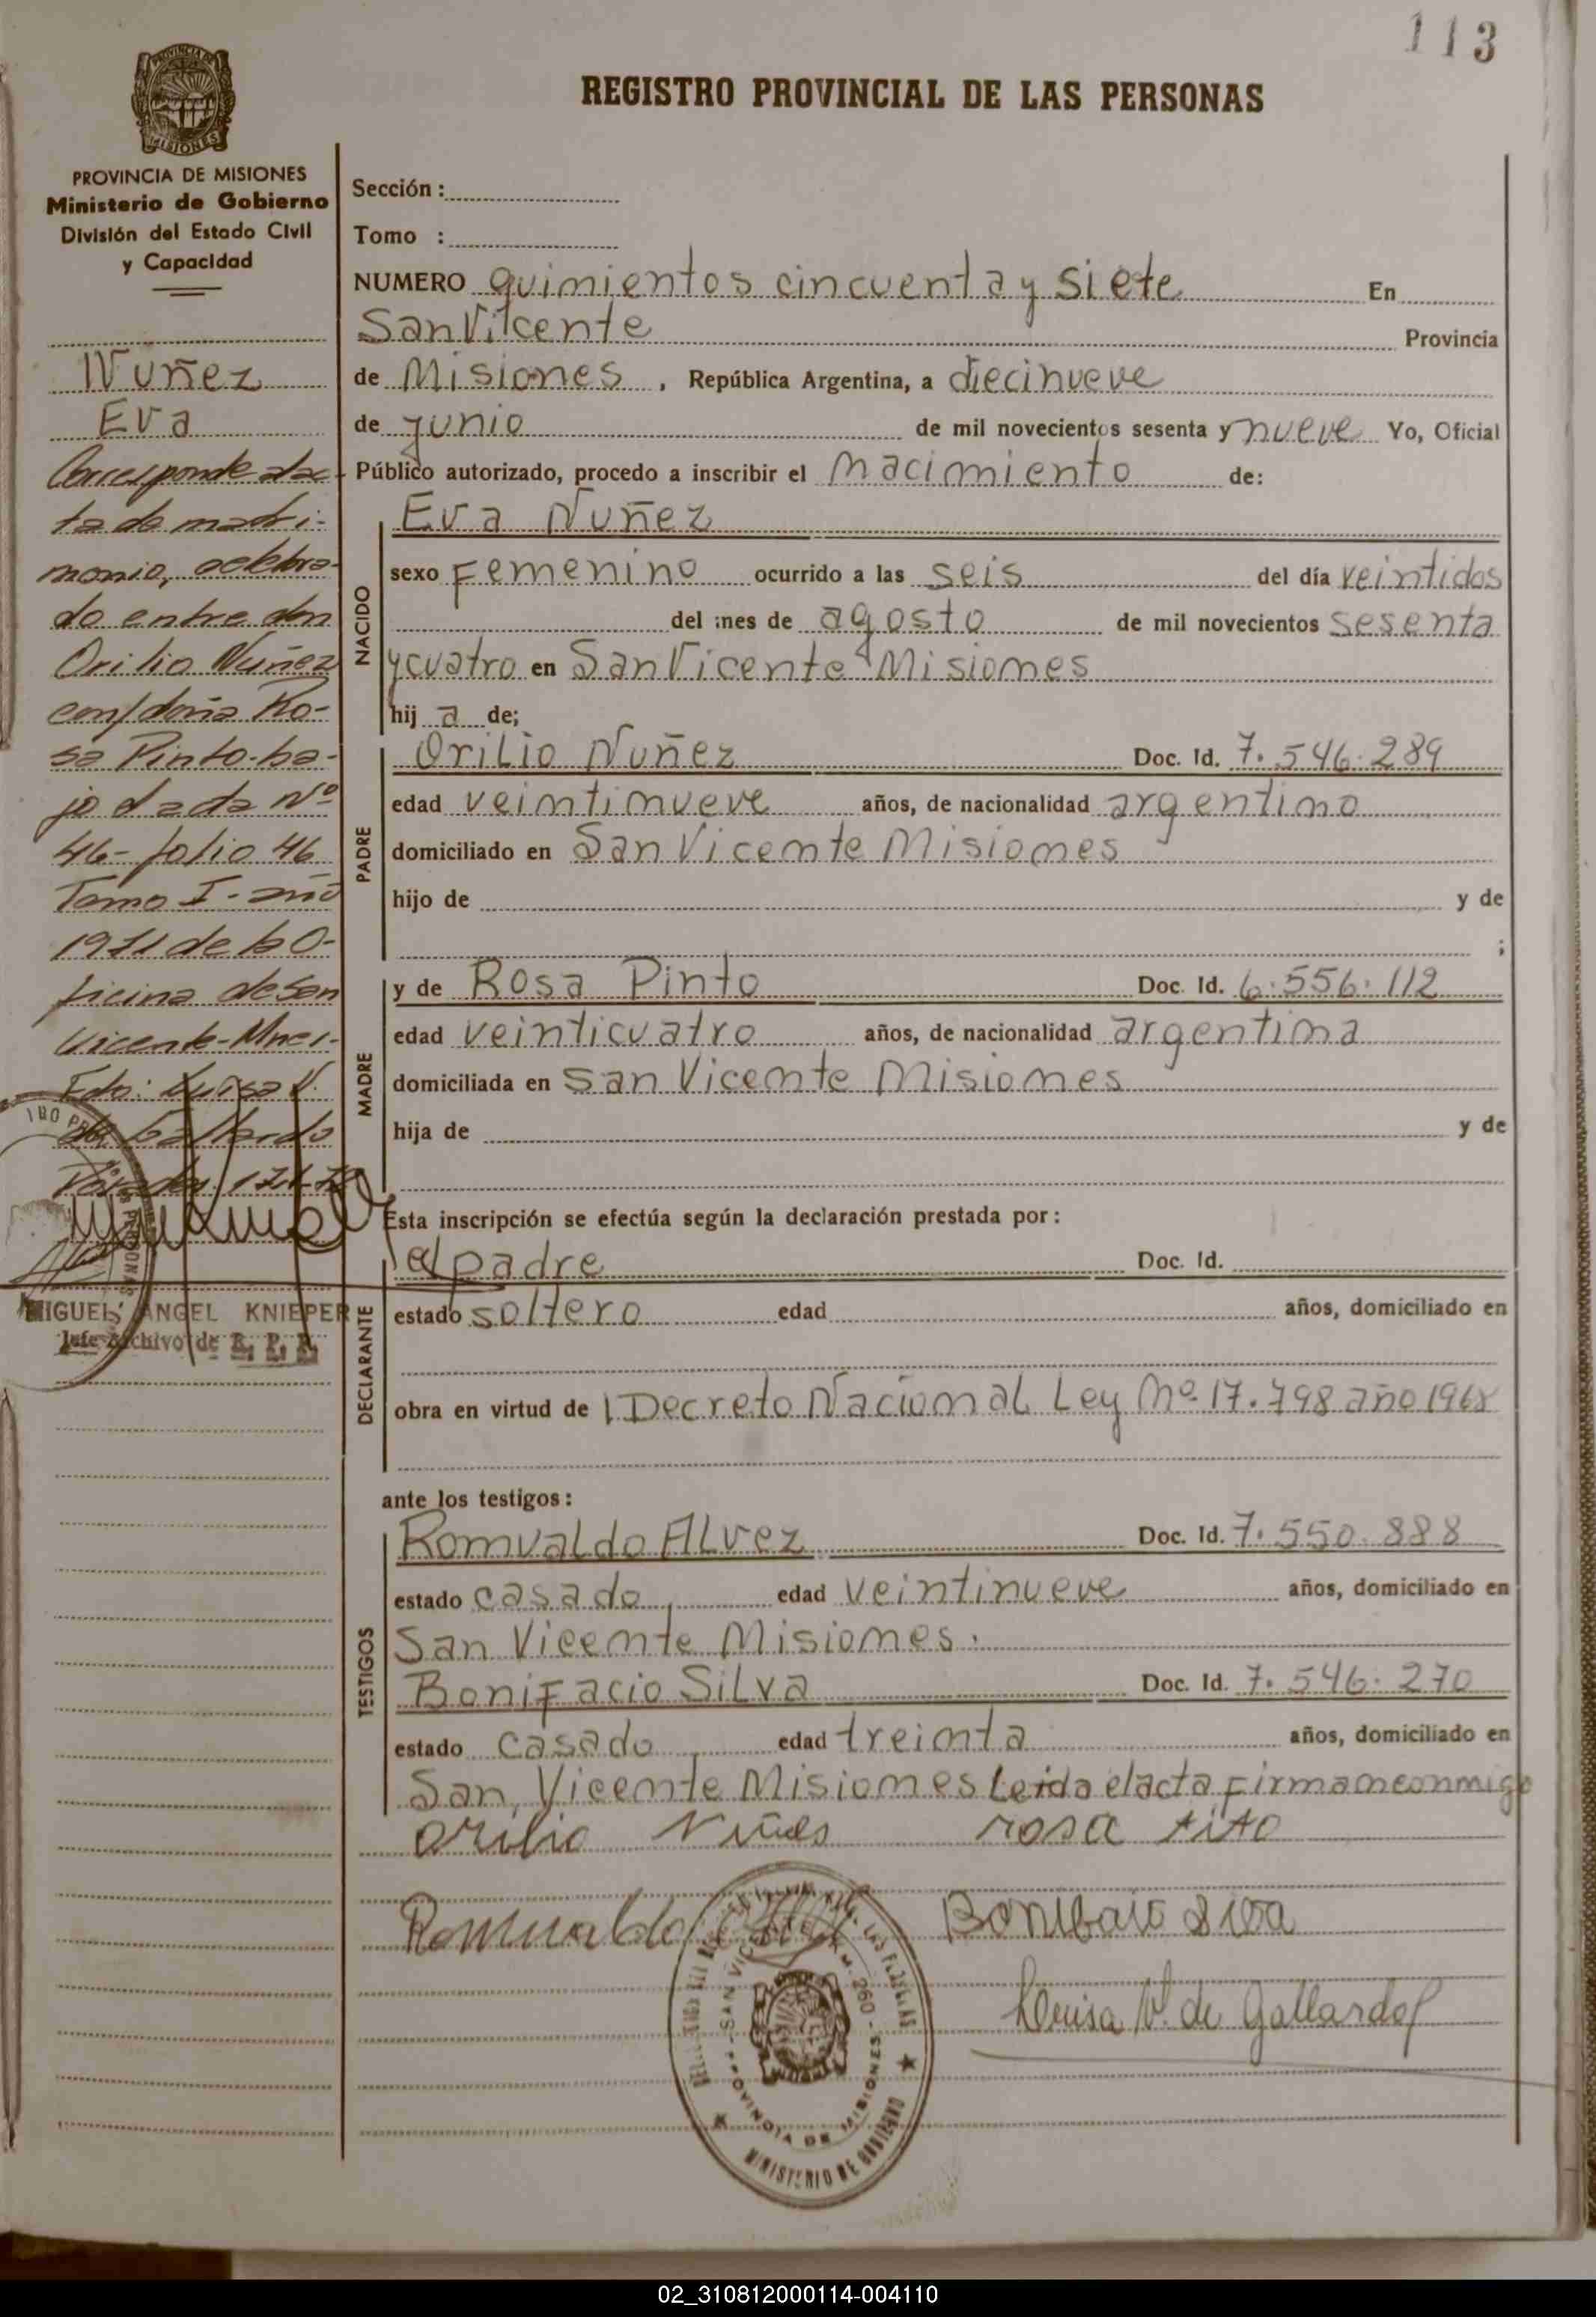 113
REGISTRO PROVINCIAL DE LAS PERSONAS
MISIONES
PROVINCIA DE MISIONES
Ministerio de Gobierno
División del Estado Civil
y Capacidad
Nuñez
Eva
Corresponde al ac-
ta de matri-
monio, celebra-
do entre don
Orilio Nuñez
con/doña Ro-
sa Pinto-ba-
jo el acta Nº
46- folio 46
Tomo I- año
1971 de la O-
ficina de San
Vicente-Mnes-
Fdo: Luisa V.
de Gallardo
MIGUEL ANGEL KNIEPER
Jefe Archivo de R. P. P.
Sección :
Tomo :
NUMERO quimientos cincuenta y siete En
San Vicente Provincia
de Misiones , República Argentina, a diecinueve
de junio de mil novecientos sesenta y nueve Yo, Oficial
Público autorizado, procedo a inscribir el nacimiento de:
NACIDO
Eva Nuñez
sexo Femenino ocurrido a las seis del día veintidos
del mes de agosto de mil novecientos sesenta
y cuatro en San Vicente Misiones
hij a de;
PADRE
Orilio Nuñez Doc. Id. 7.546.289
edad veintinueve años, de nacionalidad argentino
domiciliado en San Vicente Misiones
hijo de y de
;
MADRE
y de Rosa Pinto Doc. Id. 6.556.112
edad veinticuatro años, de nacionalidad argentina
domiciliada en San Vicente Misiones
hija de y de
Esta inscripción se efectúa según la declaración prestada por :
DECLARANTE
el padre Doc. Id.
estado soltero edad años, domiciliado en
obra en virtud de Decreto Nacional Ley Nº 17.798 año 1968
ante los testigos :
TESTIGOS
Romualdo Alvez Doc. Id. 7.550.888
estado casado edad veintinueve años, domiciliado en
San Vicente Misiones.
Bonifacio Silva Doc. Id. 7.546.270
estado casado edad treinta años, domiciliado en
San, Vicente Misiones Leida el acta Firman conmigo
Orilio Nuñes rosa tito
Romualdo Bonibaio Silva
Luisa V. de Gallardo
SAN VICENTE
PROVINCIA DE MISIONES
MINISTERIO DE GOBIERNO
02_310812000114-004110